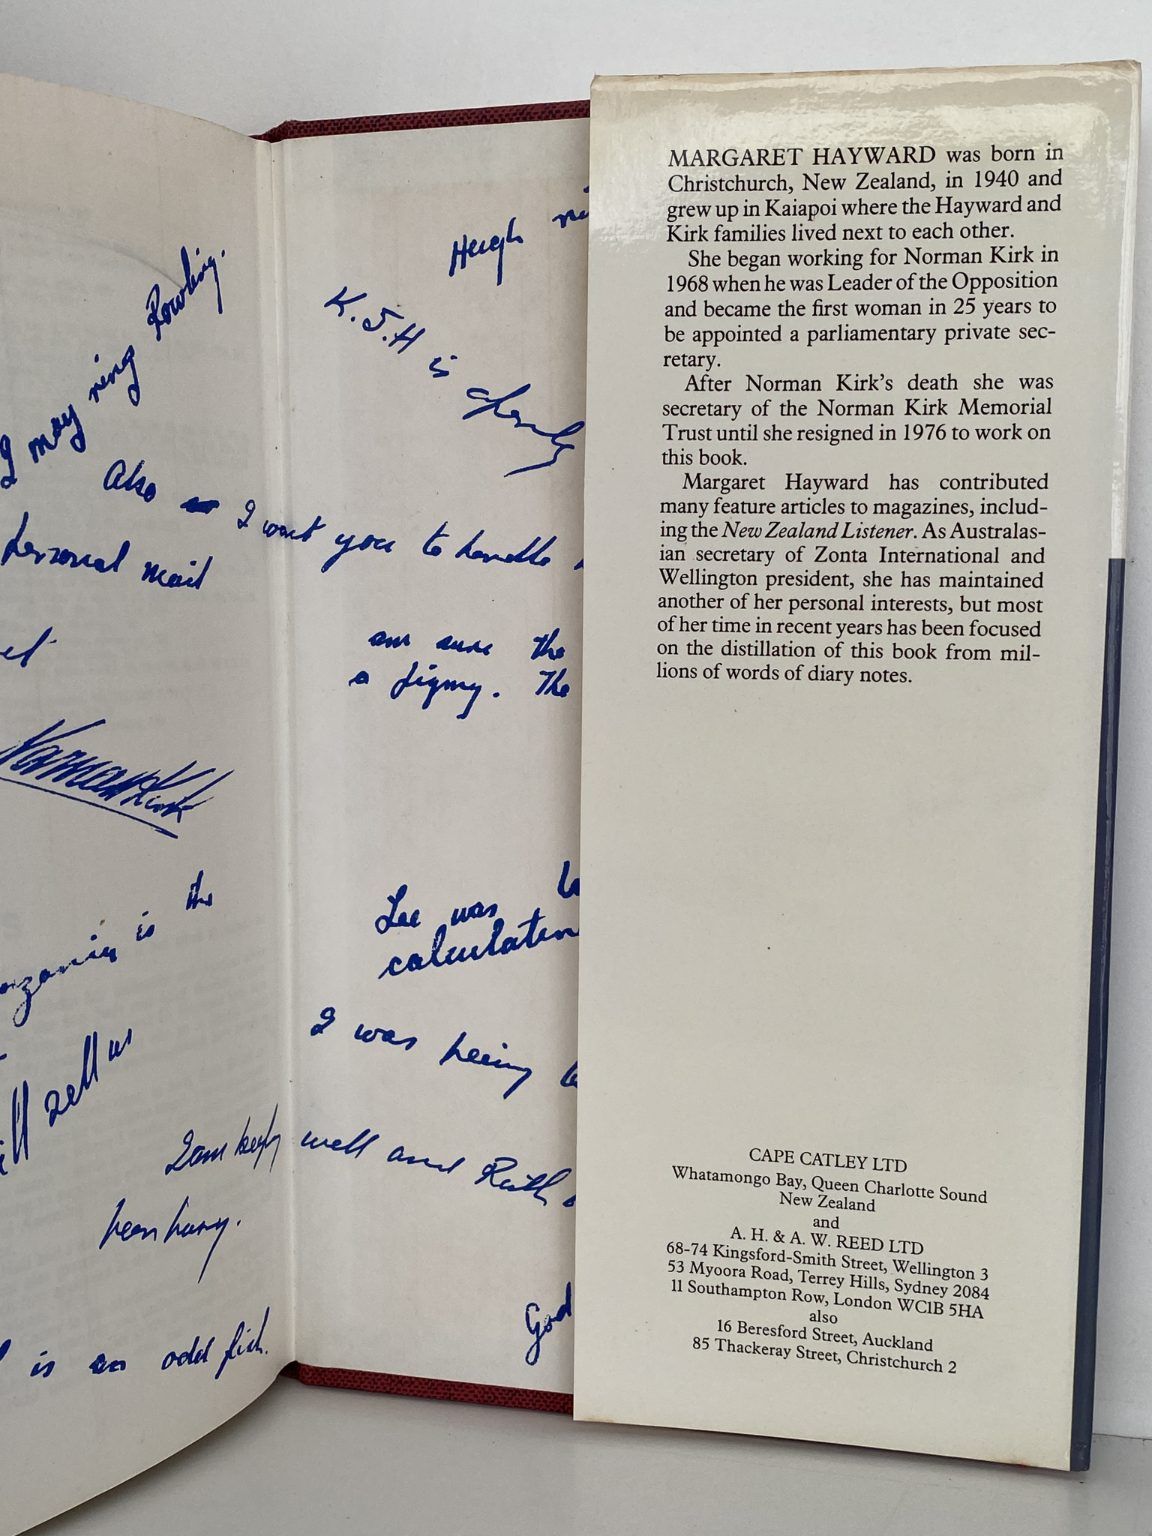 I may ring Rowling.
Also I want you to handle
personal mail
Norman Kirk
is the
tell us
I am keep well and Ruth
been busy.
is an odd fish.
Hugh
K.J.H is
am sure the
a pigmy. The
Lee was
calculation
I was being
God
MARGARET HAYWARD was born in
Christchurch, New Zealand, in 1940 and
grew up in Kaiapoi where the Hayward and
Kirk families lived next to each other.
She began working for Norman Kirk in
1968 when he was Leader of the Opposition
and became the first woman in 25 years to
be appointed a parliamentary private sec-
retary.
After Norman Kirk's death she was
secretary of the Norman Kirk Memorial
Trust until she resigned in 1976 to work on
this book.
Margaret Hayward has contributed
many feature articles to magazines, includ-
ing the New Zealand Listener. As Australas-
ian secretary of Zonta International and
Wellington president, she has maintained
another of her personal interests, but most
of her time in recent years has been focused
on the distillation of this book from mil-
lions of words of diary notes.
CAPE CATLEY LTD
Whatamongo Bay, Queen Charlotte Sound
New Zealand
and
A. H. & A. W. REED LTD
68-74 Kingsford-Smith Street, Wellington 3
53 Myoora Road, Terrey Hills, Sydney 2084
11 Southampton Row, London WC1B 5HA
also
16 Beresford Street, Auckland
85 Thackeray Street, Christchurch 2